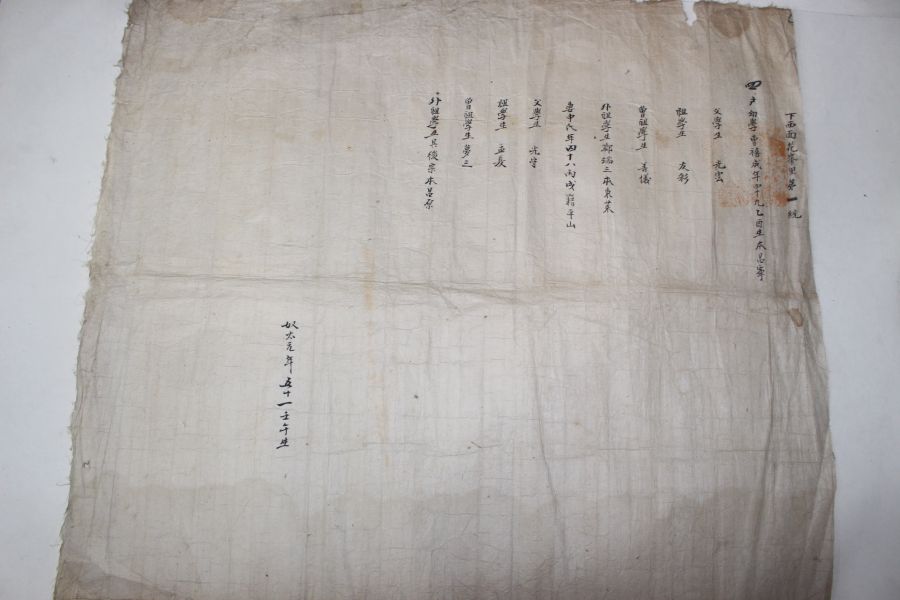 下西面花寨里第一統
四戶幼學曹禧成年四十九乙酉生本昌寧
父學生 光雲
祖學生 友彩
曾祖學生 善儀
外祖學生鄭瑞三本東萊
妻申氏年四十八丙戌籍平山
父學生 光宇
祖學生 孟長
曾祖學生 夢三
外祖學生具俊宗本昌原
奴太元年五十一壬午生